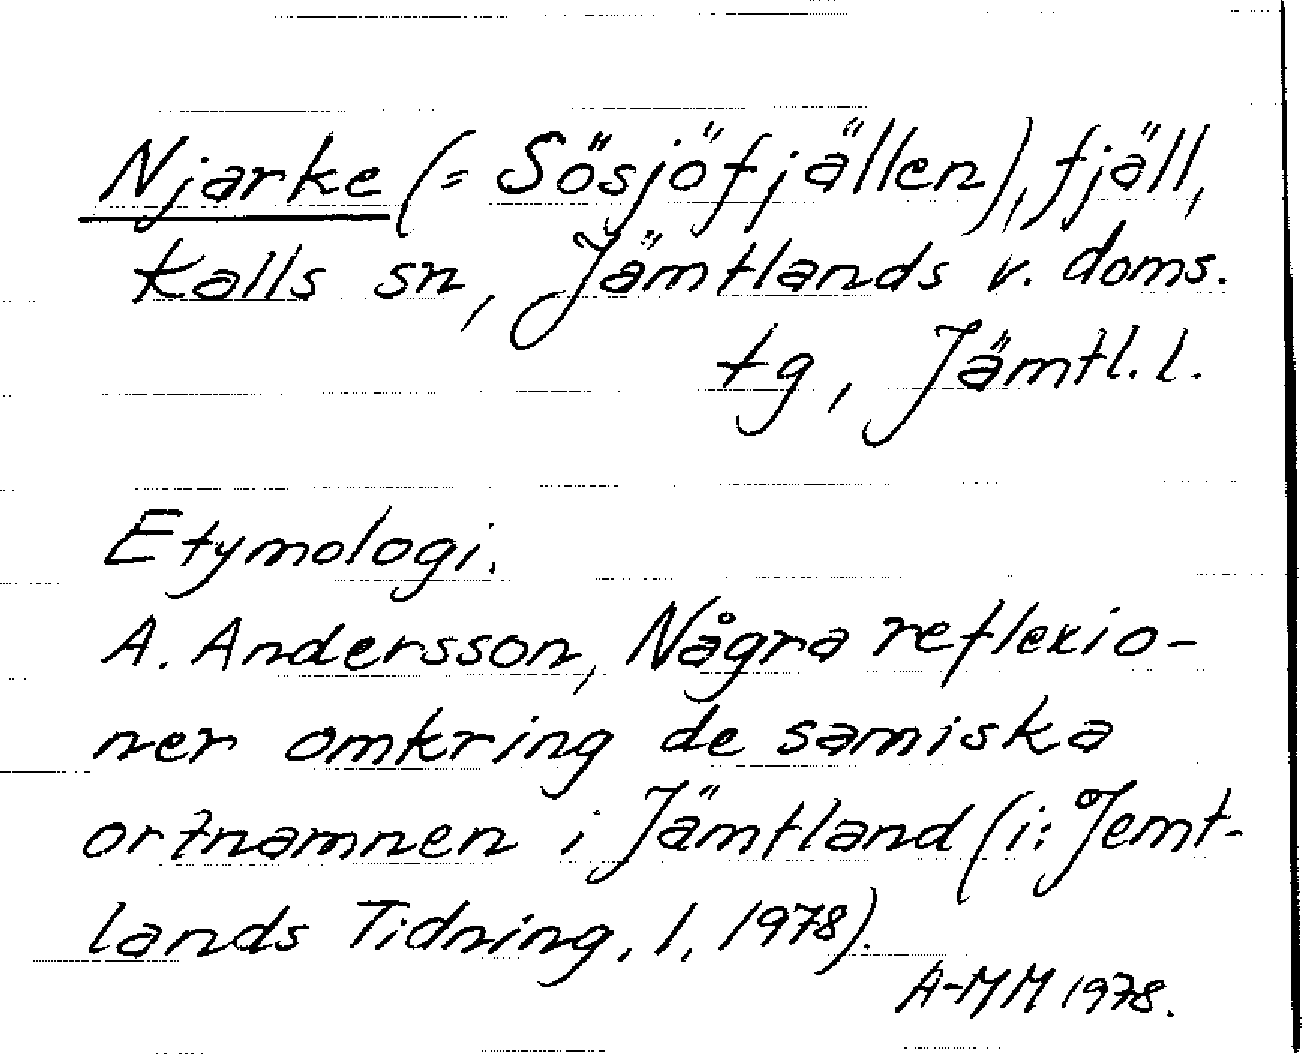 Njarke (= Sösjöfjällen), fjäll,
Kalls sn, Jämtlands v. doms.
tg, Jämtl. l.
Etymologi.
A. Andersson, Några reflexio-
ner omkring de samiska
ortnamnen i Jämtland (i: Jemt-
lands Tidning, 1, 1978).
A-MM 1978.